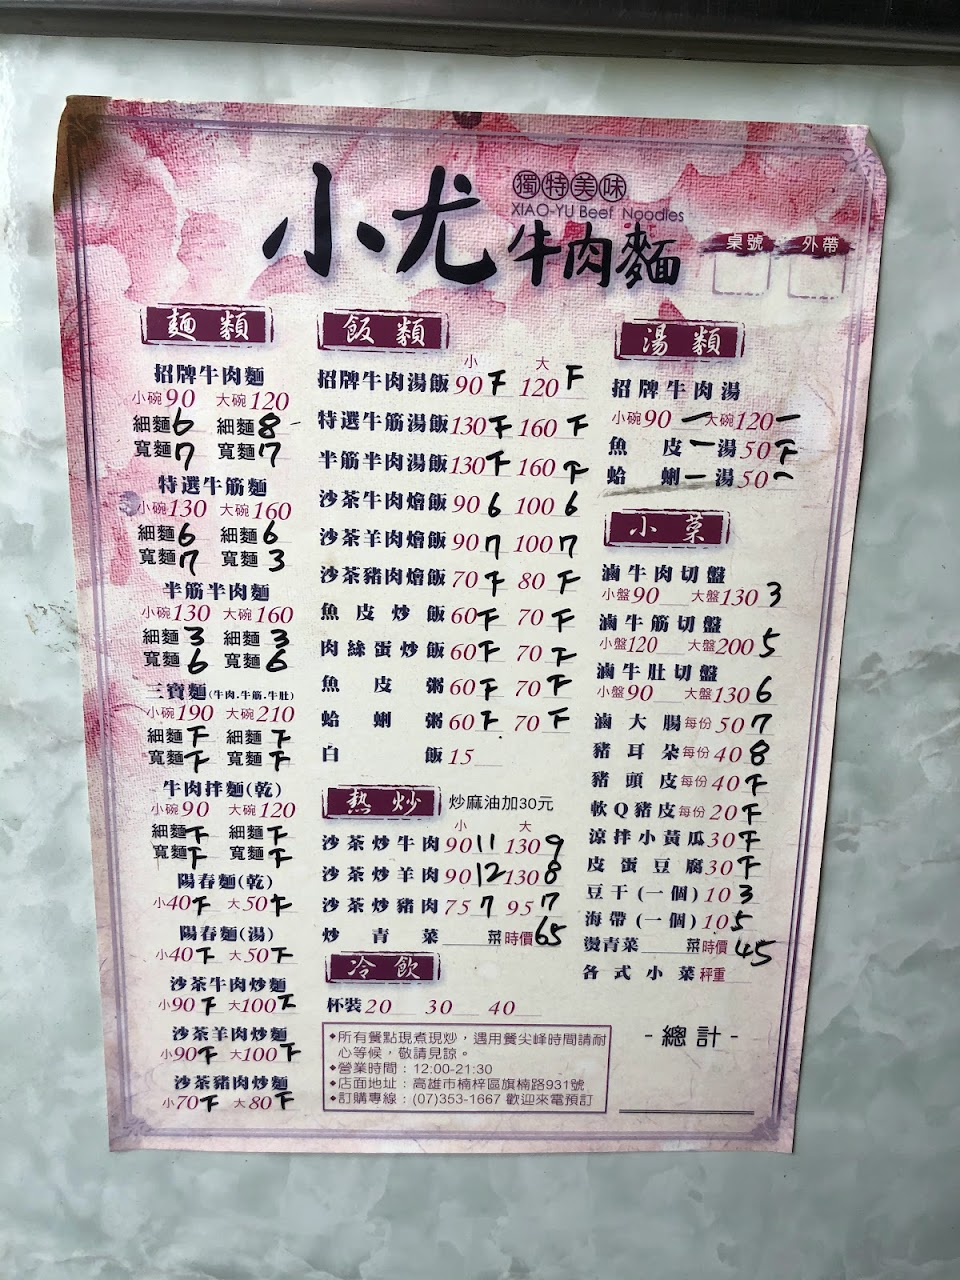 小尤
獨特美味
XIAO-YU Beef Noodles
牛肉麵
桌號 外帶
麵類
招牌牛肉麵
小碗90 大碗120
細麵6 細麵8
寬麵7 寬麵7
特選牛筋麵
小碗130 大碗160
細麵6 細麵6
寬麵7 寬麵3
半筋半肉麵
小碗130 大碗160
細麵3 細麵3
寬麵6 寬麵6
三寶麵(牛肉.牛筋.牛肚)
小碗190 大碗210
細麵下 細麵下
寬麵下 寬麵下
牛肉拌麵(乾)
小碗90 大碗120
細麵下 細麵下
寬麵下 寬麵下
陽春麵(乾)
小40下 大50下
陽春麵(湯)
小40下 大50下
沙茶牛肉炒麵
小90下 大100下
沙茶羊肉炒麵
小90下 大100下
沙茶豬肉炒麵
小70下 大80下
飯類
小 大
招牌牛肉湯飯 90下 120下
特選牛筋湯飯 130下 160下
半筋半肉湯飯 130下 160下
沙茶牛肉燴飯 90 6 100 6
沙茶羊肉燴飯 90 7 100 7
沙茶豬肉燴飯 70下 80下
魚皮炒飯 60下 70下
肉絲蛋炒飯 60下 70下
魚皮粥 60下 70下
蛤蜊粥 60下 70下
白飯 15
熱炒 炒麻油加30元
小 大
沙茶炒牛肉 90 11 130 9
沙茶炒羊肉 90 12 130 8
沙茶炒豬肉 75 7 95 7
炒青菜 菜時價65
冷飲
杯裝20 30 40
◆所有餐點現煮現炒，遇用餐尖峰時間請耐
心等候，敬請見諒。
◆營業時間：12:00-21:30
◆店面地址：高雄市楠梓區旗楠路931號
◆訂購專線：(07)353-1667 歡迎來電預訂
湯類
招牌牛肉湯
小碗90一 大碗120一
魚皮一湯 50下
蛤蜊一湯 50一
小菜
滷牛肉切盤
小盤90 大盤130 3
滷牛筋切盤
小盤120 大盤200 5
滷牛肚切盤
小盤90 大盤130 6
滷大腸 每份 50 7
豬耳朵 每份 40 8
豬頭皮 每份 40下
軟Q豬皮 每份 20下
涼拌小黃瓜 30下
皮蛋豆腐 30下
豆干(一個) 10 3
海帶(一個) 10 5
燙青菜 菜時價45
各式小菜 秤重
-總計-